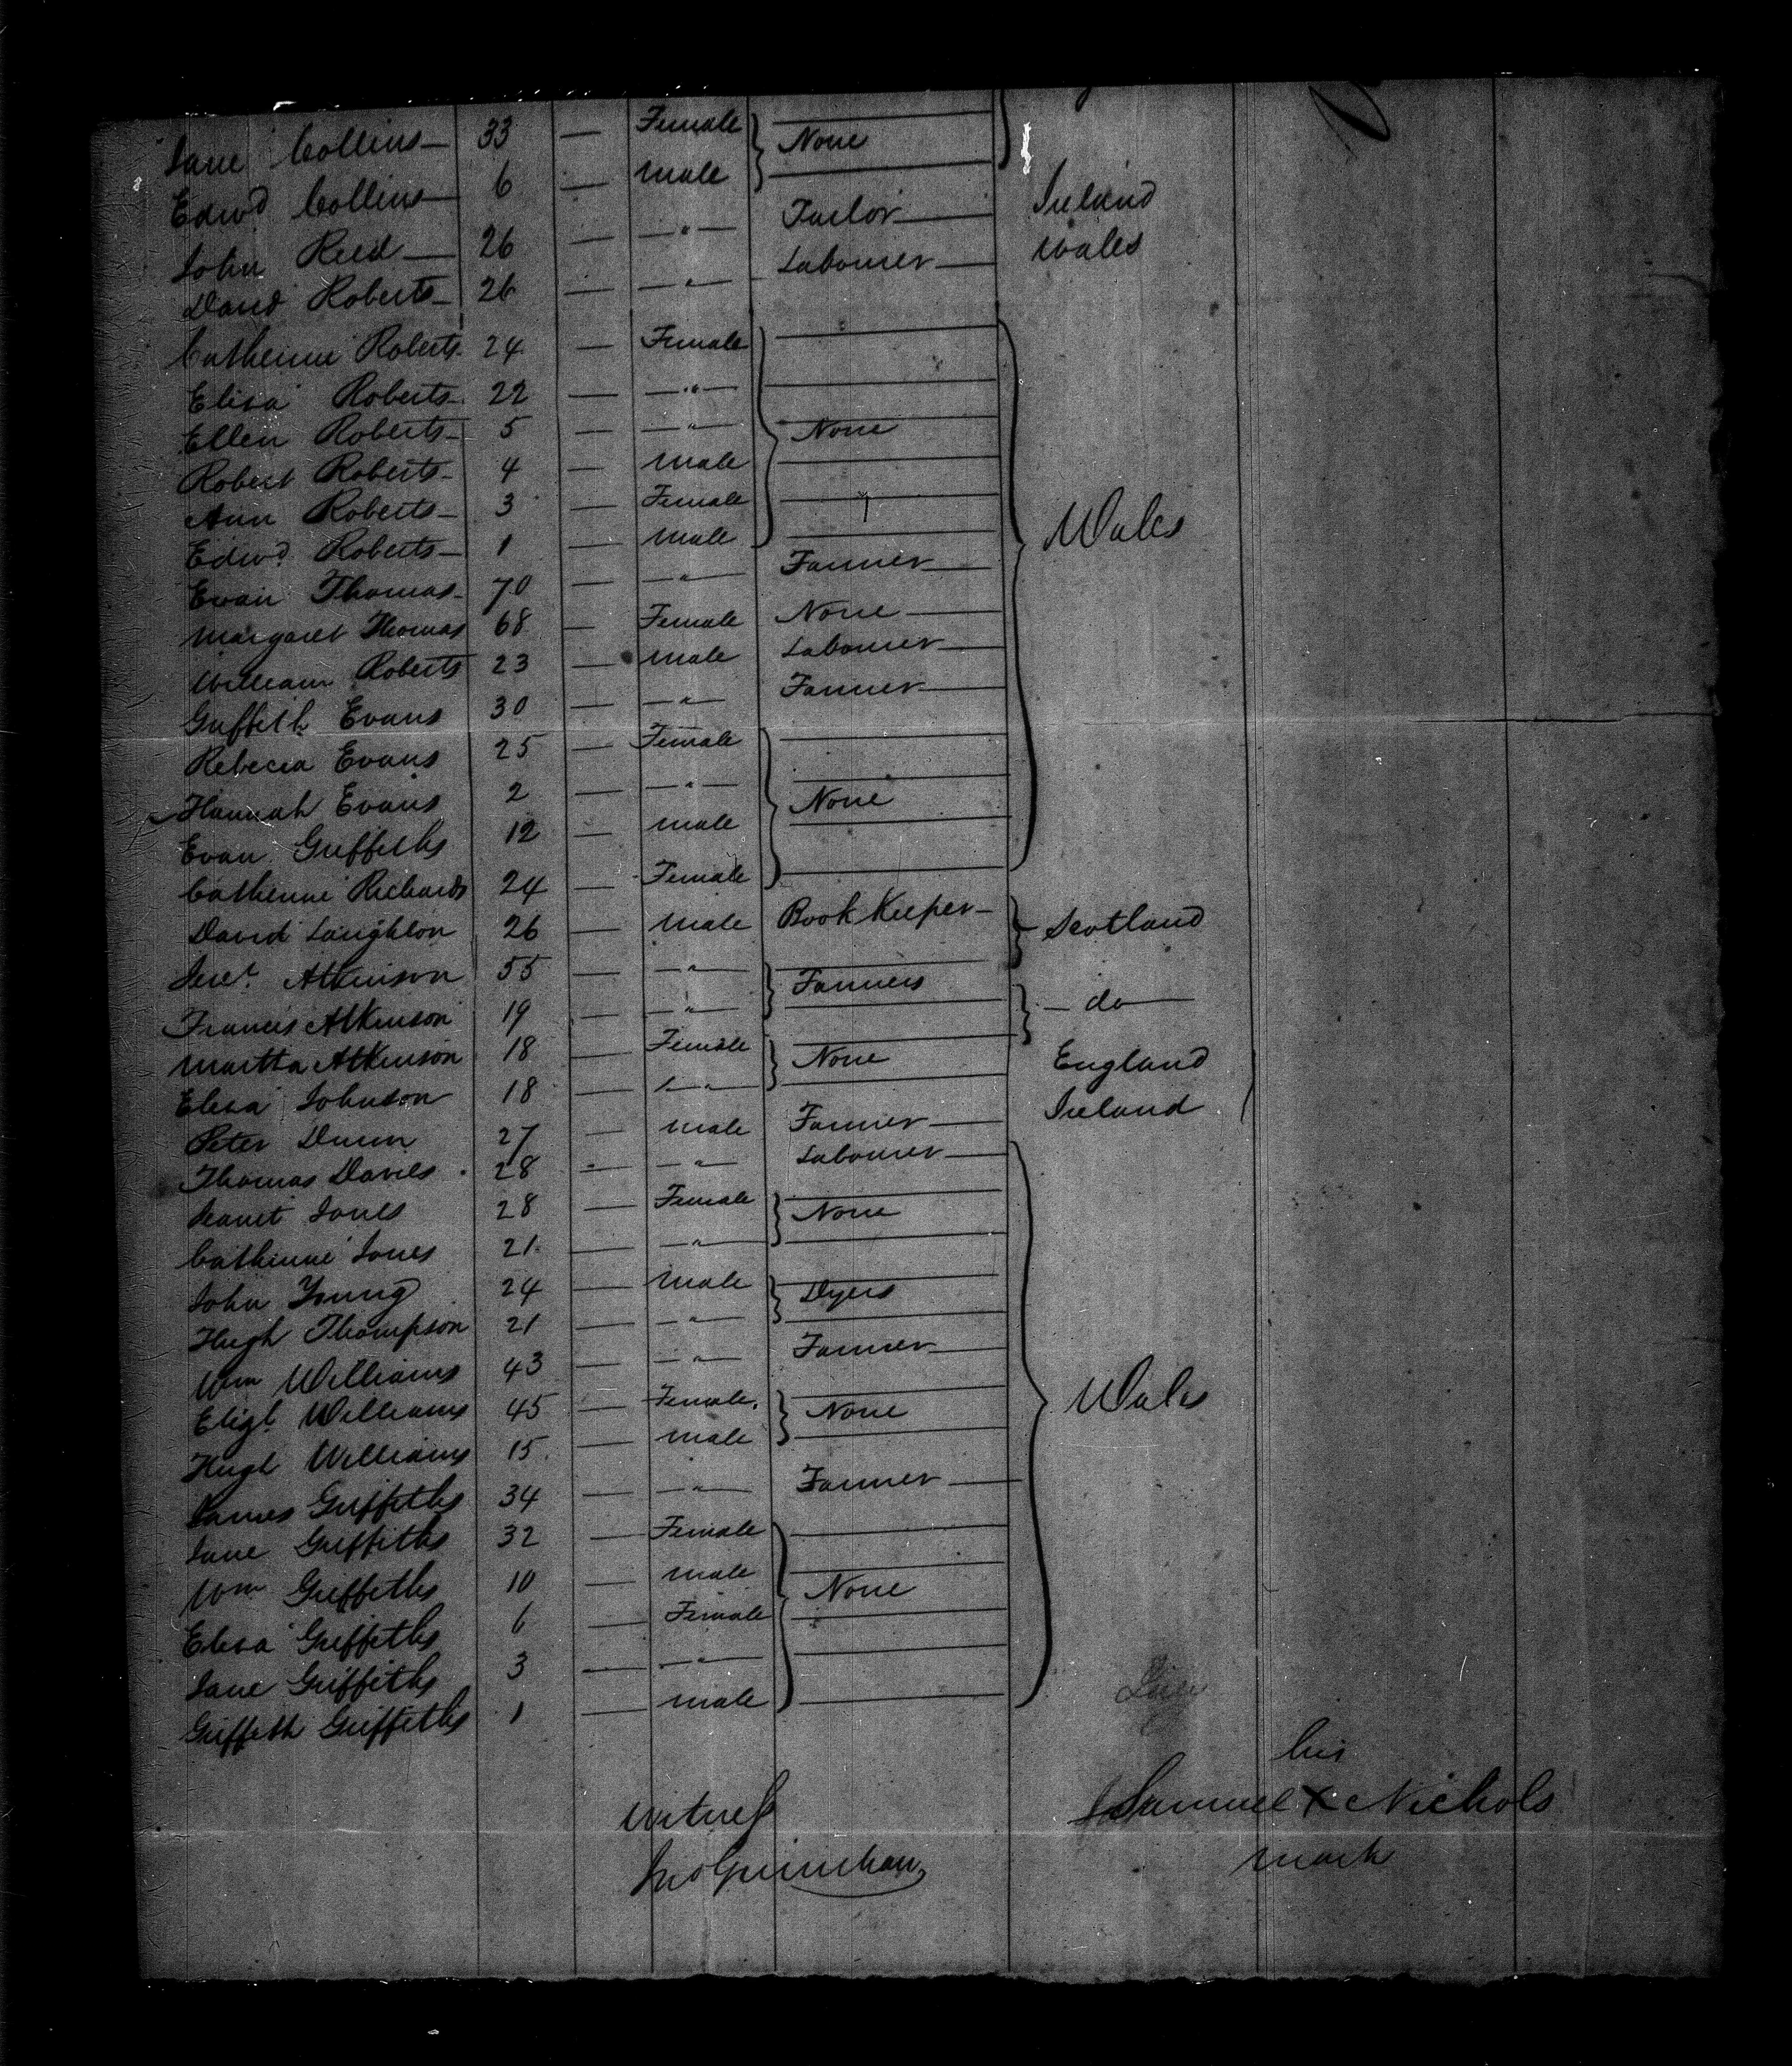 Jane Collins — 33 — Female None
Edwd Collins — 6 — Male
John Reed — 26 — " — Tailor — Ireland
David Roberts — 26 — " — Labourer — Wales
Catherine Roberts 24 — Female
Eliza Roberts 22 — " —
Ellen Roberts — 5 — " — None
Robert Roberts — 4 — Male
Ann Roberts — 3 — Female
Edwd Roberts — 1 — Male Wales
Evan Thomas — 70 — " — Farmer —
Margaret Thomas 68 — Female None —
William Roberts 23 — Male Labourer —
Griffith Evans 30 — " — Farmer —
Rebecca Evans 25 — Female
Hannah Evans 2 — " — None
Evan Griffiths 12 — Male
Catherine Richards 24 — Female
David Laughlon 26 — Male Book Keeper — Scotland
Atkinson 55 — " — Farmers
Francis Atkinson 19 — " — — do —
Martha Atkinson 18 — Female None
Eliza Johnson 18 — " — England
Peter Dunn 27 — Male Farmer — Ireland
Thomas Davies 28 — " — Labourer —
Jeanet Jones 28 — Female None
Catherine Jones 21 — " —
John Young 24 — Male Dyers
Hugh Thompson 21 — " —
Wm Williams 43 — " — Farmer —
Elizt Williams 45 — Female None Wales
Hugh Williams 15 — Male
James Griffiths 34 — " — Farmer —
Jane Griffiths 32 — Female
Wm Griffiths 10 — Male None
Eliza Griffiths 6 — Female
Jane Griffiths 3 — " —
Griffith Griffiths 1 — Male
his
Witness Samuel X Nichols
mark